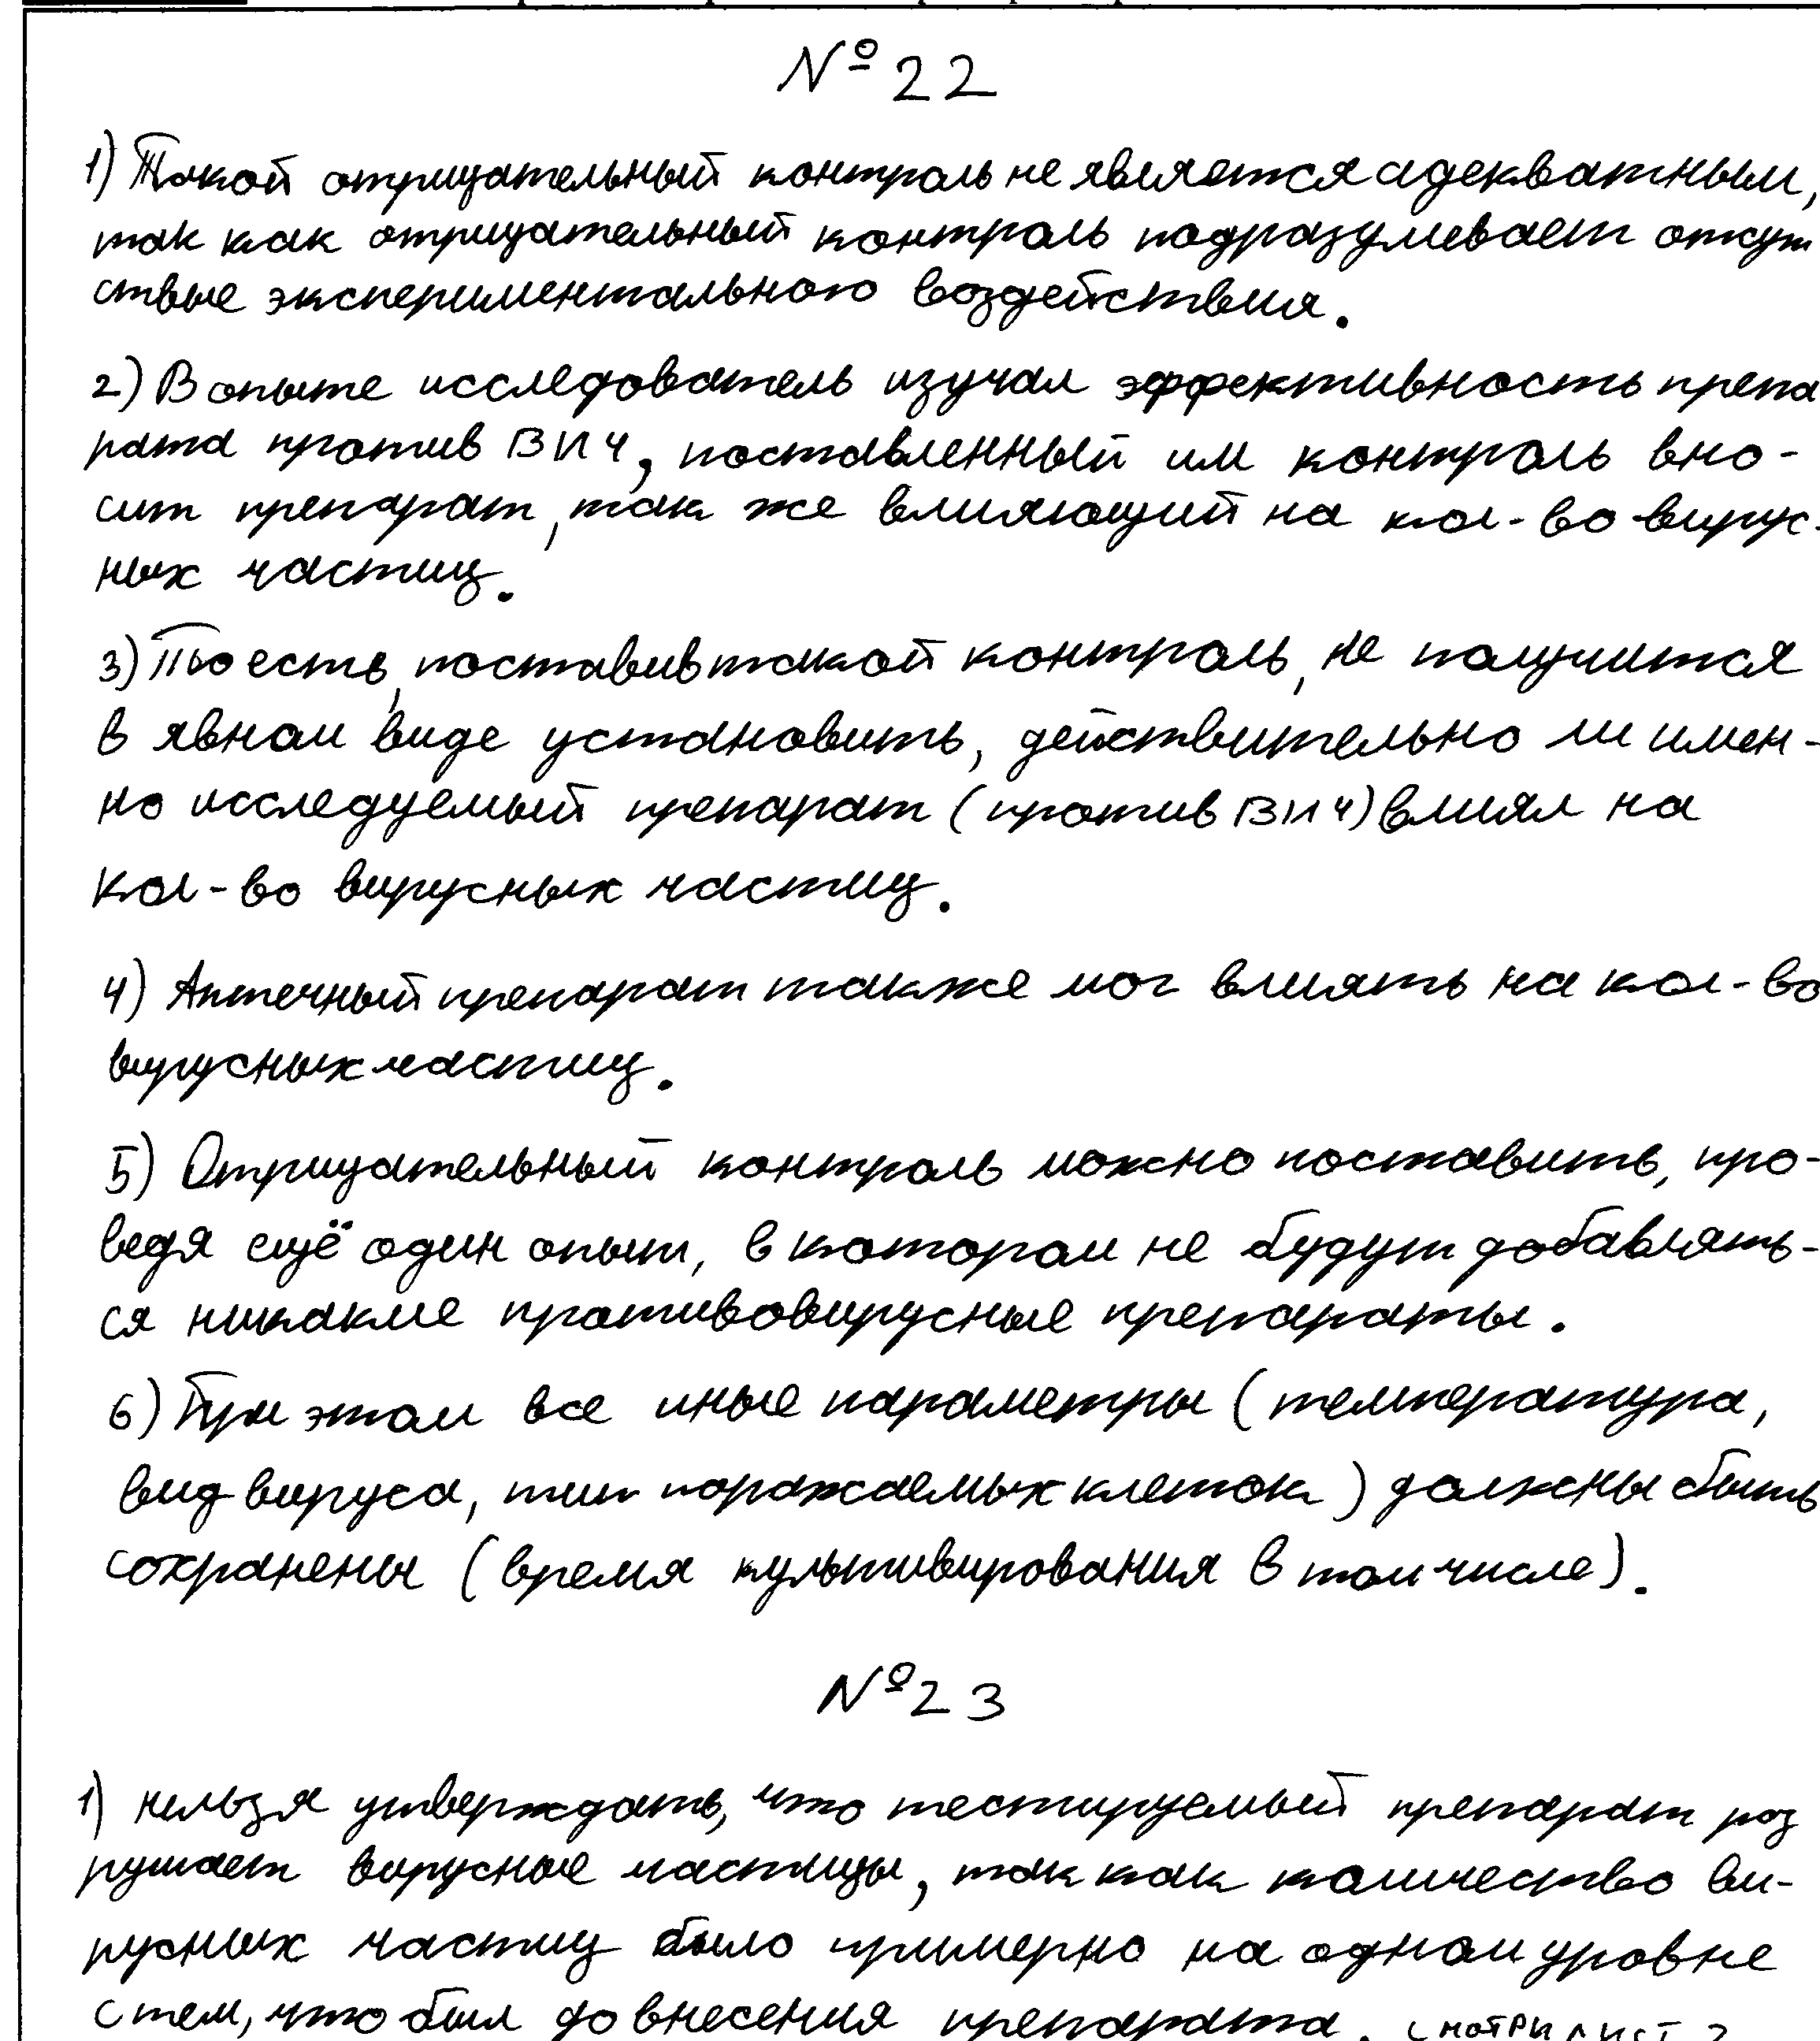 № 22
1) Такой отрицательный контроль не является адекватным,
так как отрицательный контроль подразумевает отсут
ствие экспериментального воздействия.
2) В опыте исследователь изучал эффективность препа
рата против ВИЧ, поставленный им контроль вно-
сит препарат, так же влияющий на кол-во вирус-
ных частиц.
3) То есть, поставив такой контроль, не получится
в явном виде установить, действительно ли имен-
но исследуемый препарат (против ВИЧ) влиял на
кол-во вирусных частиц.
4) Аптечный препарат также мог влиять на кол-во
вирусных частиц.
5) Отрицательный контроль можно поставить, про-
ведя ещё один опыт, в котором не будут добавлять-
ся никакие противовирусные препараты.
6) При этом все иные параметры (температура,
вид вируса, тип поражаемых клеток) должны быть
сохранены (время культивирования в том числе).
№ 23
1) нельзя утверждать, что тестируемый препарат раз
рушает вирусные частицы, так как количество ви-
русных частиц было примерно на одном уровне
с тем, что был до внесения препарата. СМОТРИ ЛИСТ 2